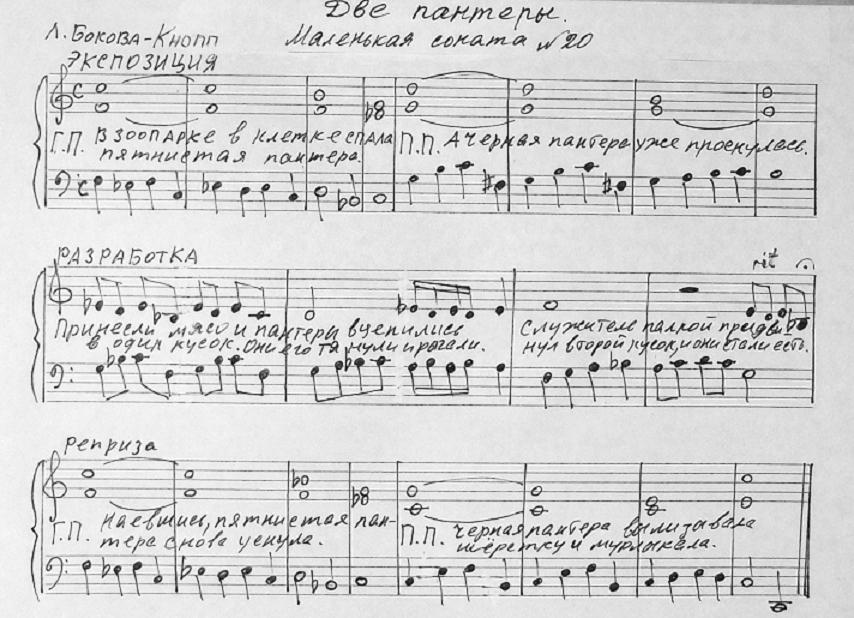 Две пантеры.
Л. Бокова-Кнопп
Маленькая соната №20
ЭКСПОЗИЦИЯ
Г.П. В зоопарке в клетке спала
пятнистая пантера.
П.П. А черная пантера уже проснулась.
РАЗРАБОТКА
rit
Принесли мясо и пантеры вцепились
в один кусок. Они его тянули и рычали.
Служитель палкой придви
нул второй кусок, и они стали есть.
Реприза
Г.П. Наевшись, пятнистая пан-
тера снова уснула.
П.П. Черная пантера вылизывала
шёрстку и мурлыкала.